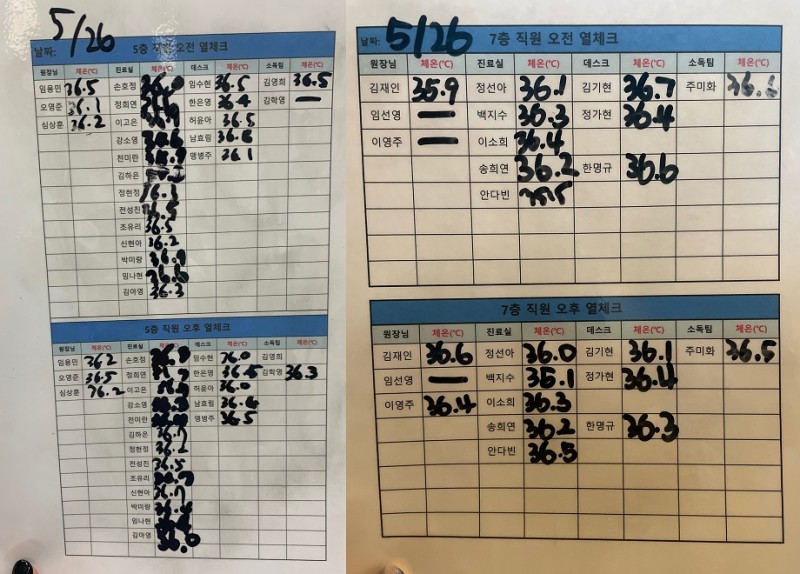 5/26
날짜: 5층 직원 오전 열체크
원장님 체온(℃) 진료실 체온(℃) 데스크 체온(℃) 소독팀 체온(℃)
임용민 36.5 손호정 임수현 36.5 김영희 36.5
오영준 36.1 정희연 한은영 36.4 김학영 —
심상훈 36.2 이고은 허윤아 36.5
강소영 남효림 36.8
천미란 맹병주 36.1
김하은
정현정
전성진
조유리 36.5
신현아 36.2
박미랑
임나현
김아영 36.3
5층 직원 오후 열체크
원장님 체온(℃) 진료실 체온(℃) 데스크 체온(℃) 소독팀 체온(℃)
임용민 36.2 손호정 임수현 36.0 김영희
오영준 36.5 정희연 한은영 36.5 김학영 36.3
심상훈 36.2 이고은 허윤아 36.0
강소영 남효림 36.4
천미란 맹병주 36.5
김하은 36.7
정현정 36.2
전성진 36.5
조유리
신현아 36.7
박미랑 36.4
임나현
김아영 36.0
날짜: 5/26 7층 직원 오전 열체크
원장님 체온(℃) 진료실 체온(℃) 데스크 체온(℃) 소독팀 체온(℃)
김재인 35.9 정선아 36.1 김기현 36.7 주미화
임선영 — 백지수 36.3 정가현 36.4
이영주 — 이소희 36.4
송희연 36.2 한명규 36.6
안다빈 35.5
7층 직원 오후 열체크
원장님 체온(℃) 진료실 체온(℃) 데스크 체온(℃) 소독팀 체온(℃)
김재인 36.6 정선아 36.0 김기현 36.1 주미화 36.5
임선영 — 백지수 36.1 정가현 36.4
이영주 36.4 이소희 36.3
송희연 36.2 한명규 36.3
안다빈 36.5